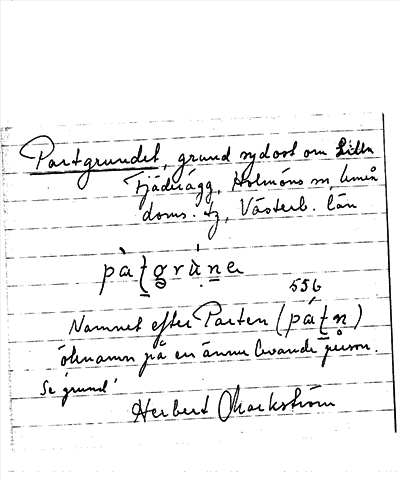 Partgrundet, grund sydost om Lilla
Fjäderägg, Holmöns sn, Umeå
doms. tg, Västerb. län
pàƫgrùne
556
Namnet efter Parten (páƫn̥)
öknamn på en ännu levande person.
Se 'grund'
Herbert Markström